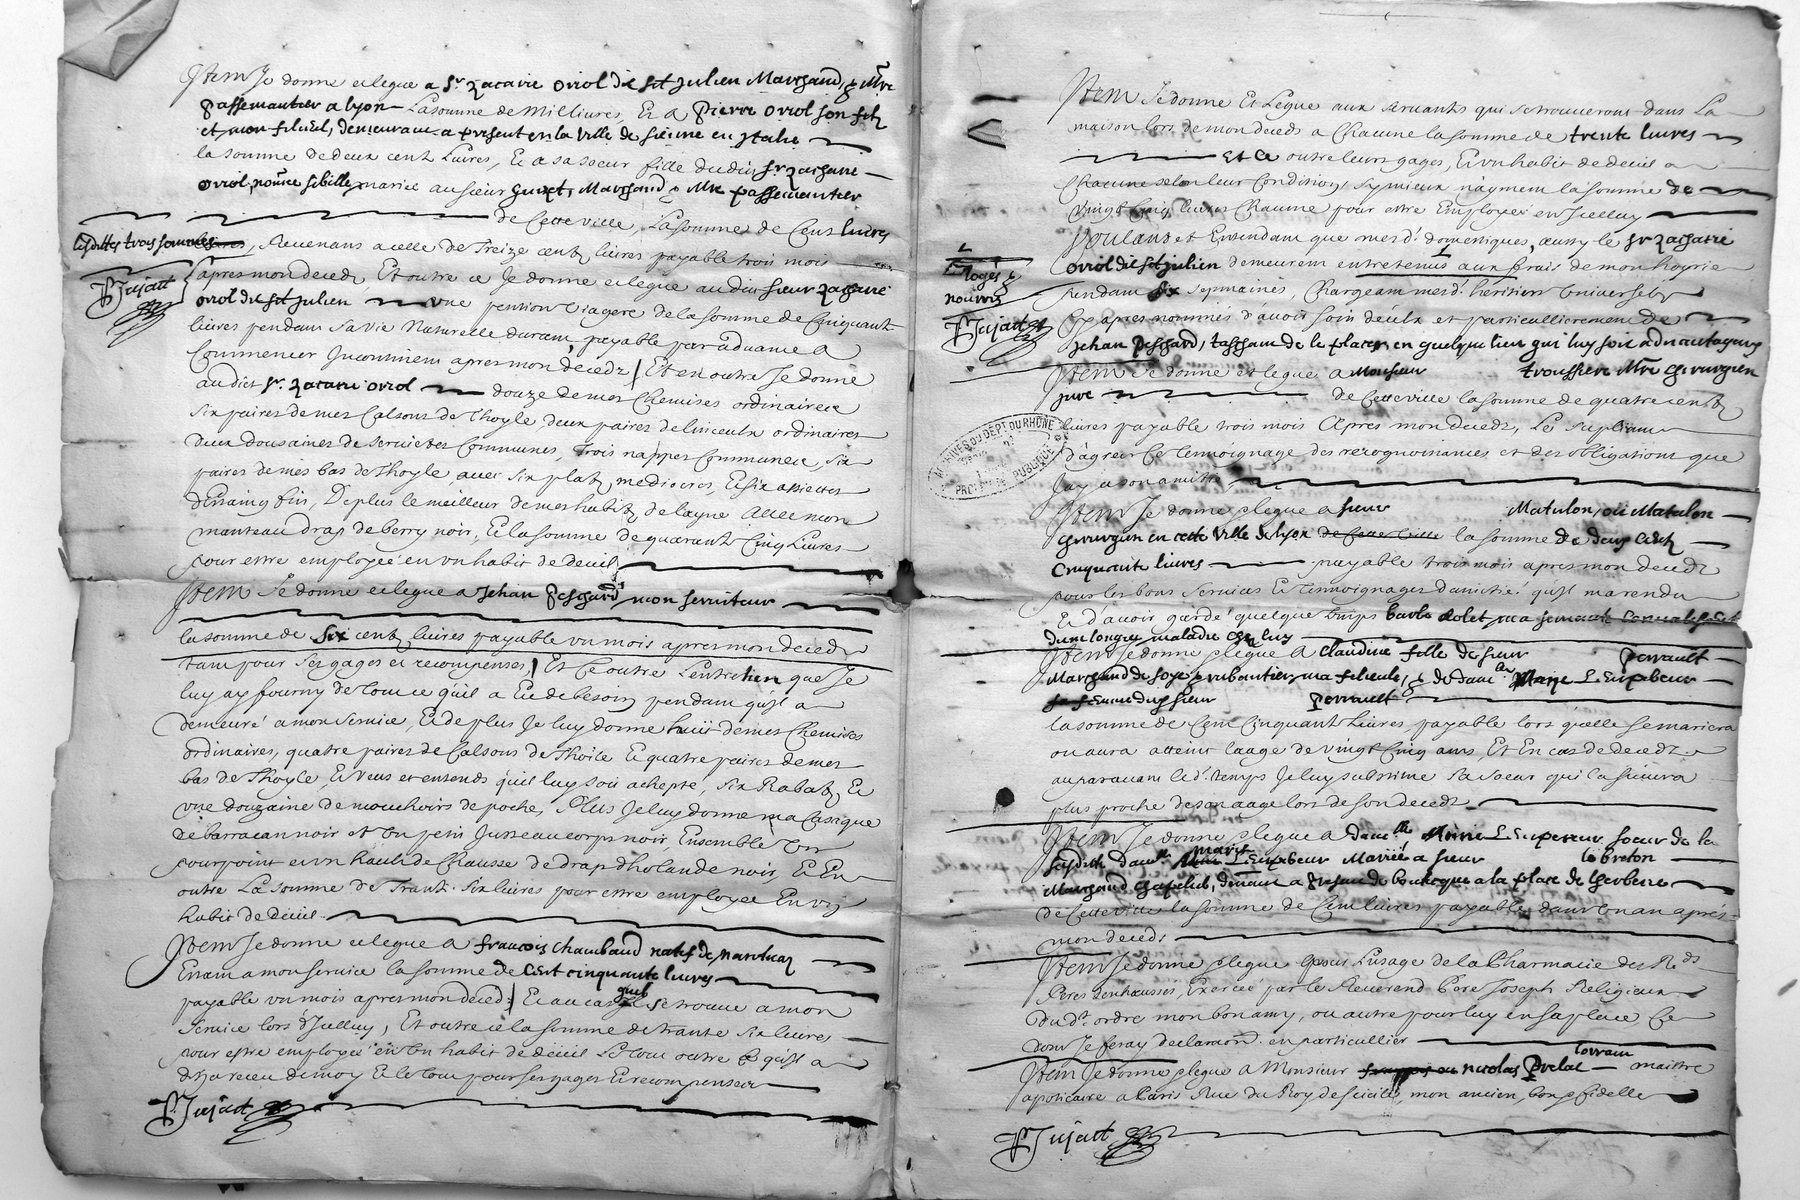 Item Je donne et legue a Sr zacarie oriol dit st Julien Marchand & Mre
passemantier a lyon La somme de Mil livres, Et A pierre oriol son filz
et mon filieul, demeurant a present en la ville de sienne en Italie
la somme de deux cent Livres, Et a sa soeur fille dudit Sr zacharie
oriol, nommée sibille mariée au sieur Guyet, Marchand & Mre passemantier
de Cette ville, La somme de Cent livres
lesdittes trois sommes, Revenans a celle de Treize cent livres payable trois mois
apres mon decedz, Et outre ce Je donne et legue audit sieur zacharie
P Jujatt
oriol dit st Julien une pention viagere de la somme de Cinquante
livres pendant sa vie Naturelle durant, payable par advance A
Commencer Incontinent apres mon decedz / Et en outre Je donne
audict Sr. zacarie oriol douze de mes Chemises ordinaires
six paires de mes Calsons de Thoyle, deux paires de linceulx ordinaires
deux dousaines de serviettes Communes, Trois nappes Communes, six
paires de mes bas de Thoyle, avec six platz mediocres, Et six assiettes
d'estaing fin, De plus le meilleur de mes habitz de layne Avec mon
manteau drap de berry noir, Et la somme de quarante Cinq Livres
pour estre employée en un habit de deuil
Item Je donne et legue a Jehan peschard mon serviteur
la somme de six cent livres payable un mois apres mon decedz
tant pour ses gages et recompenses, / Et Ce outre L'entretien que Je
luy ay fourny de tout ce qu'il a Eu de besoin pendant qu'il a
demeuré a mon service, Et de plus Je luy donne huit de mes Chemises
ordinaires, quatre paires de Calsons de Thoile Et quatre paires de mes
bas de Thoyle, Et veus et entends qu'il luy soit achepté, six Rabatz Et
une douzaine de mouchoirs de poche, Plus Je luy donne ma Casaque
de barracan noir et un petit Justeaucorps noir, Ensemble un
pourpoint et un hault de Chausse de drap d'holande noir, Et En
outre La somme de Trante six livres pour estre employée En un
habit de deuil
Item Je donne et legue A francois Chambaud natif de
Estant a mon service la somme de Cent cinquante livres
payable un mois apres mon decedz / Et au cas quil se trouve a mon
service lors d'Icelluy, Et outre ce la somme de trante six livres
pour estre employée en un habit de deuil Le tout outre Ce qu'il a
desja receu de moy Et le tout pour ses gages Et recompenses
P Jujatt
Item Je donne Et Legue aux servants qui se trouverons dans La
maison lors de mon decedz a Chacune la somme de trente livres
et ce outre leurs gages, Et un habit de deuil a
Chacune selon leur Condition, sy mieux n'ayment la somme de
vingt Cinq livres Chacune pour estre Employée en Icelluy
Voulant et Entendant que mesd. domestiques, aussy le Sr zacharie
oriol dit st Julien demeurent entretenus aux frais de mon hoyrie
logés &
nourris
P Jujatt
pendant six sepmaines, Chargeant mesd. heritiers Universelz
Cy apres nommés d'avoir soin deulx et particullierement de
Jehan peschard, taschant de le placer en quelque lieu qui luy soit advantageux
Item Je donne et legue a Monsieur troussiere Mre chirurgien
Juré de Cette ville la somme de quatre cent
livres payable trois mois Apres mon decedz, Le supliant
d'agreer Ce temoignage des recognoissances et des obligations que
J'ay a son amitié
ARCHIVES DU DEPT DU RHÔNE
PROPRIÉTÉ PUBLIQUE
Item Je donne & legue a sieur Matulon, ou Matalon
chirurgien en cette ville de lyon de Cette ville la somme de deux cent
Cinquante livres payable trois mois apres mon decedz
pour les bons services Et Temoignages d'amitié qu'il m'a rendu
Et d'avoir gardé quelque temps barbe dolet ma servante
d'une longue maladie chez luy
Item Je donne & legue A Claudine fille de sieur perrault
Marchand de soye & rubantier, ma filieule, & de dam.lle Marie L'Empereur
sa femme dud sieur perrault
la somme de Cent Cinquante Livres payable lors qu'elle se mariera
ou aura atteint l'aage de vingt Cinq ans, Et En cas de decedz
auparavant led. temps Je luy substitue sa soeur qui la suivera
plus proche de son aage lors de son decedz
Item Je donne & legue A dam.lle Marie L'Empereur soeur de la
susditte dam.lle Marie L'Empereur Mariée a sieur le breton
Marchand Chapelier, tenant a present boutique a la place de l'herberie
de Cette ville la somme de Cent livres payable dans un an apres
mon decedz
Item Je donne & legue pour l'usage de la Pharmacie des Rds
Peres Deschaussés, Exercée par le Reverend Pere Joseph Religieux
Dud. ordre mon bon amy, ou autre pour luy en sa place Ce
dont Je feray declaration en particullier
lorrain
Item Je donne & legue A Monsieur nicolas prelat maittre
apoticaire a Paris Rue du Roy de sicile, mon ancien, bon & fidelle
P Jujatt